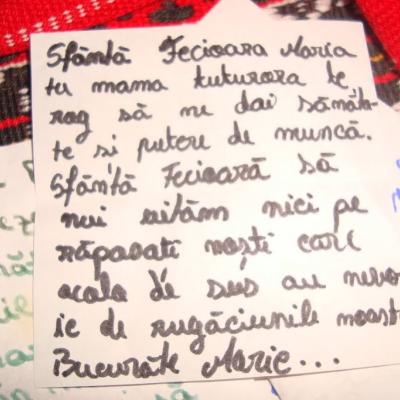 Sfântă Fecioara Maria
tu mama tuturora te
rog să ne dai sănăta-
te și putere de muncă.
Sfântă Fecioară să
nui uităm nici pe
răpasati noști care
acolo de sus au nevo
ie de rugăciunile noast
Bucurăte Marie...